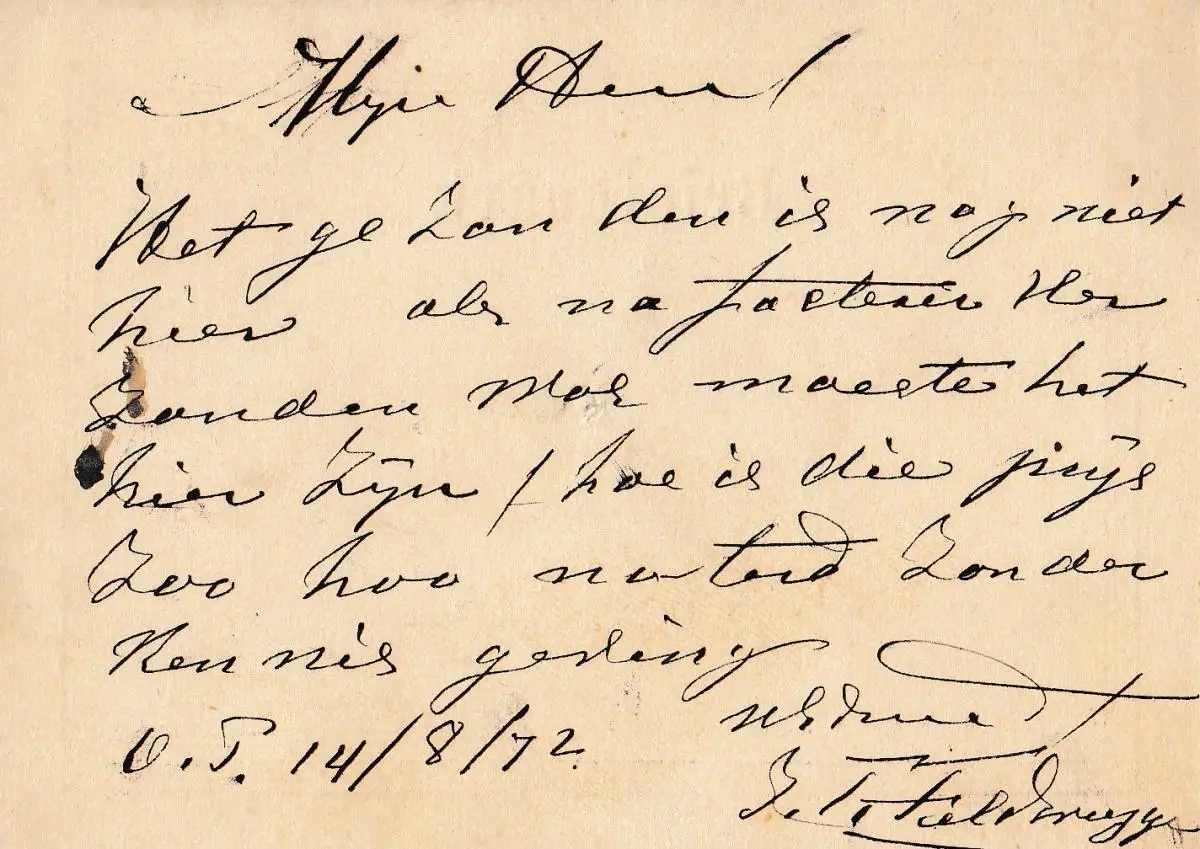 Mijn Heer
Het ge Zon den is nog niet
hier als na facteur Ver
Zonden Was moeste het
hier Zijn / hoe is die prijs
Zoo hoo Zonder
Ken nis geving
O.P. 14/8/72